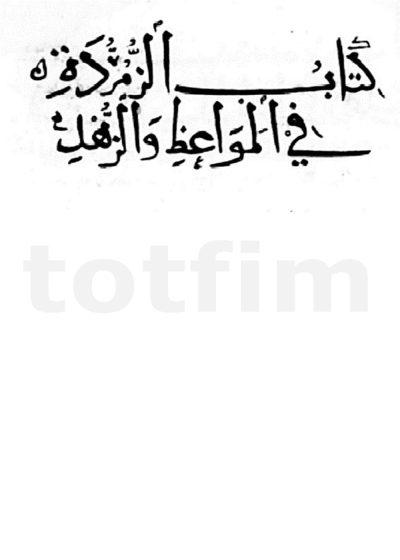 كِتَابُ الزُّمُرُّدَةِ
فِي الْمَوَاعِظِ وَالزُّهْدِ
totfim